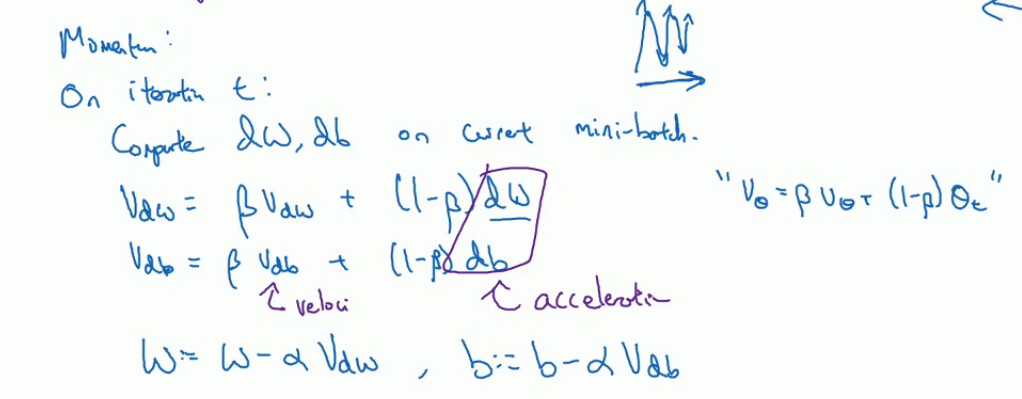 Momentum:
On iteration t:
Compute dW, db on current mini-batch.
Vdw = β Vdw + (1-β) dW
"Vθ = β Vθ + (1-β) θt"
Vdb = β Vdb + (1-β) db
veloci
acceleration
W := W - α Vdw , b := b - α Vdb